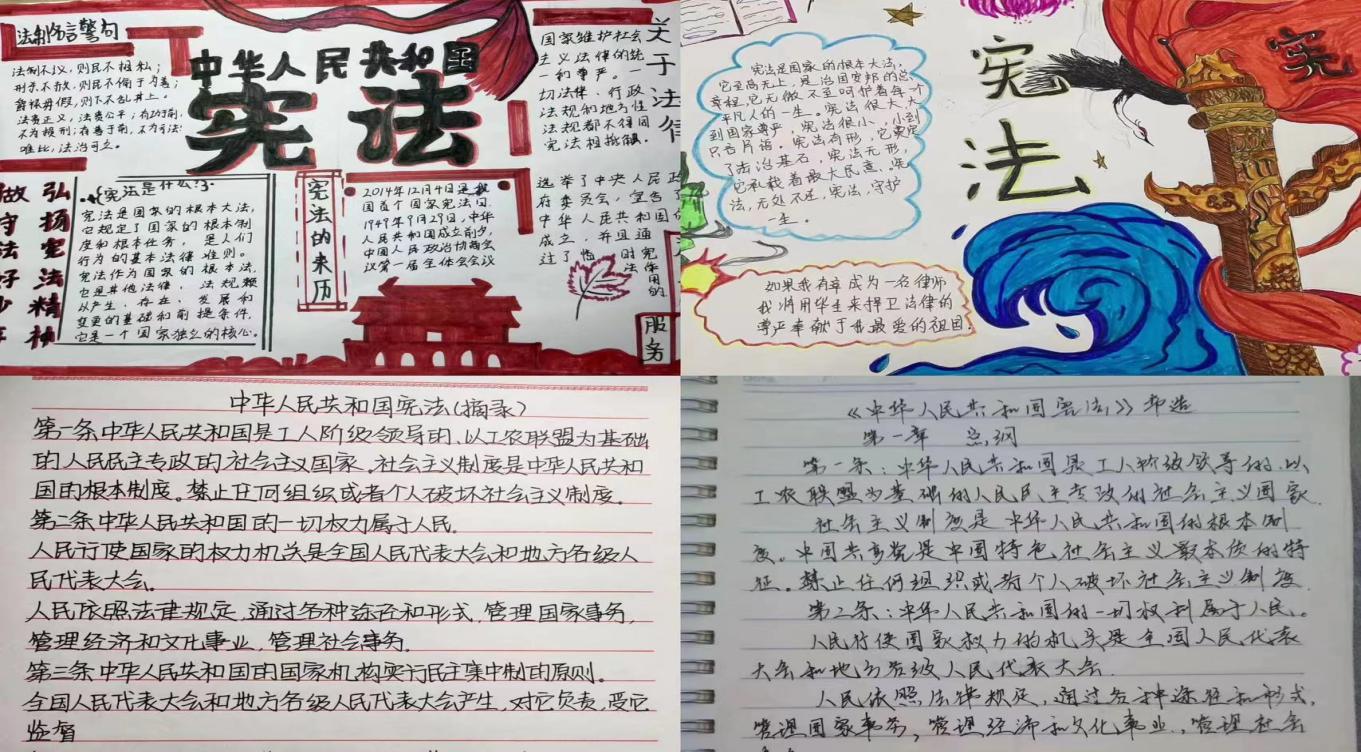 法制名言警句
法制不议,则民不相私;
刑杀不赦,则民不偷于为善;
爵禄毋假,则下不乱其上。
法贵正义,法贵公平;有功于前,
不为损刑;有善于前,不为亏法;
唯此,法治可立。
中华人民共和国
宪法
国家维护社会
主义法律的统
一和尊严。一
切法律、行政
法规和地方性
法规都不得同
宪法相抵触。
关于法律
弘扬宪法精神
做守法好少年
宪法是什么?
宪法是国家的根本大法,
它规定了国家的根本制
度和根本任务,是人们
行为的基本法律准则。
宪法作为国家的根本法,
它是其他法律、法规赖
以产生、存在、发展和
变更的基础和前提条件,
它是一个国家独立的核心。
宪法的来历
2014年12月4日是我
国首个国家宪法日.
1949年9月29日,中华
人民共和国成立前夕,
中国人民政治协商会
议第一届全体会会议
选举了中央人民政
府委员会,宣告了
中华人民共和国的
成立,并且通
过了
时宪
法作用的
服务
宪法是国家的根本大法,
它至高无上,是治国安邦的总
章程,它无微不至呵护着每个
平凡人的一生。宪法很大,大
到国家尊严,宪法很小,小到
只言片语。宪法有形,它奠定
了法治基石,宪法无形,
它承载着最大民意。宪
法,无处不在,宪法,守护
一生。
宪法
宪
如果我有幸成为一名律师
我将用毕生来捍卫法律的
尊严奉献于我最爱的祖国.
中华人民共和国宪法(摘录)
第一条中华人民共和国是工人阶级领导的、以工农联盟为基础
的人民民主专政的社会主义国家。社会主义制度是中华人民共和
国的根本制度。禁止任何组织或者个人破坏社会主义制度。
第二条中华人民共和国的一切权力属于人民。
人民行使国家的权力机关是全国人民代表大会和地方各级人
民代表大会。
人民依照法律规定,通过各种途径和形式,管理国家事务,
管理经济和文化事业,管理社会事务。
第三条中华人民共和国的国家机构实行民主集中制的原则。
全国人民代表大会和地方各级人民代表大会产生,对它负责,受它
监督
《中华人民共和国宪法》节选
第一章 总纲
第一条:中华人民共和国是工人阶级领导的、以
工农联盟为基础的人民民主专政的社会主义国家.
社会主义制度是中华人民共和国的根本制
度。中国共产党是中国特色社会主义最本质的特
征。禁止任何组织或者个人破坏社会主义制度
第二条:中华人民共和国的一切权利属于人民。
人民行使国家权力的机关是全国人民代表
大会和地方各级人民代表大会.
人民依照法律规定,通过各种途径和形式,
管理国家事务,管理经济和文化事业,管理社会